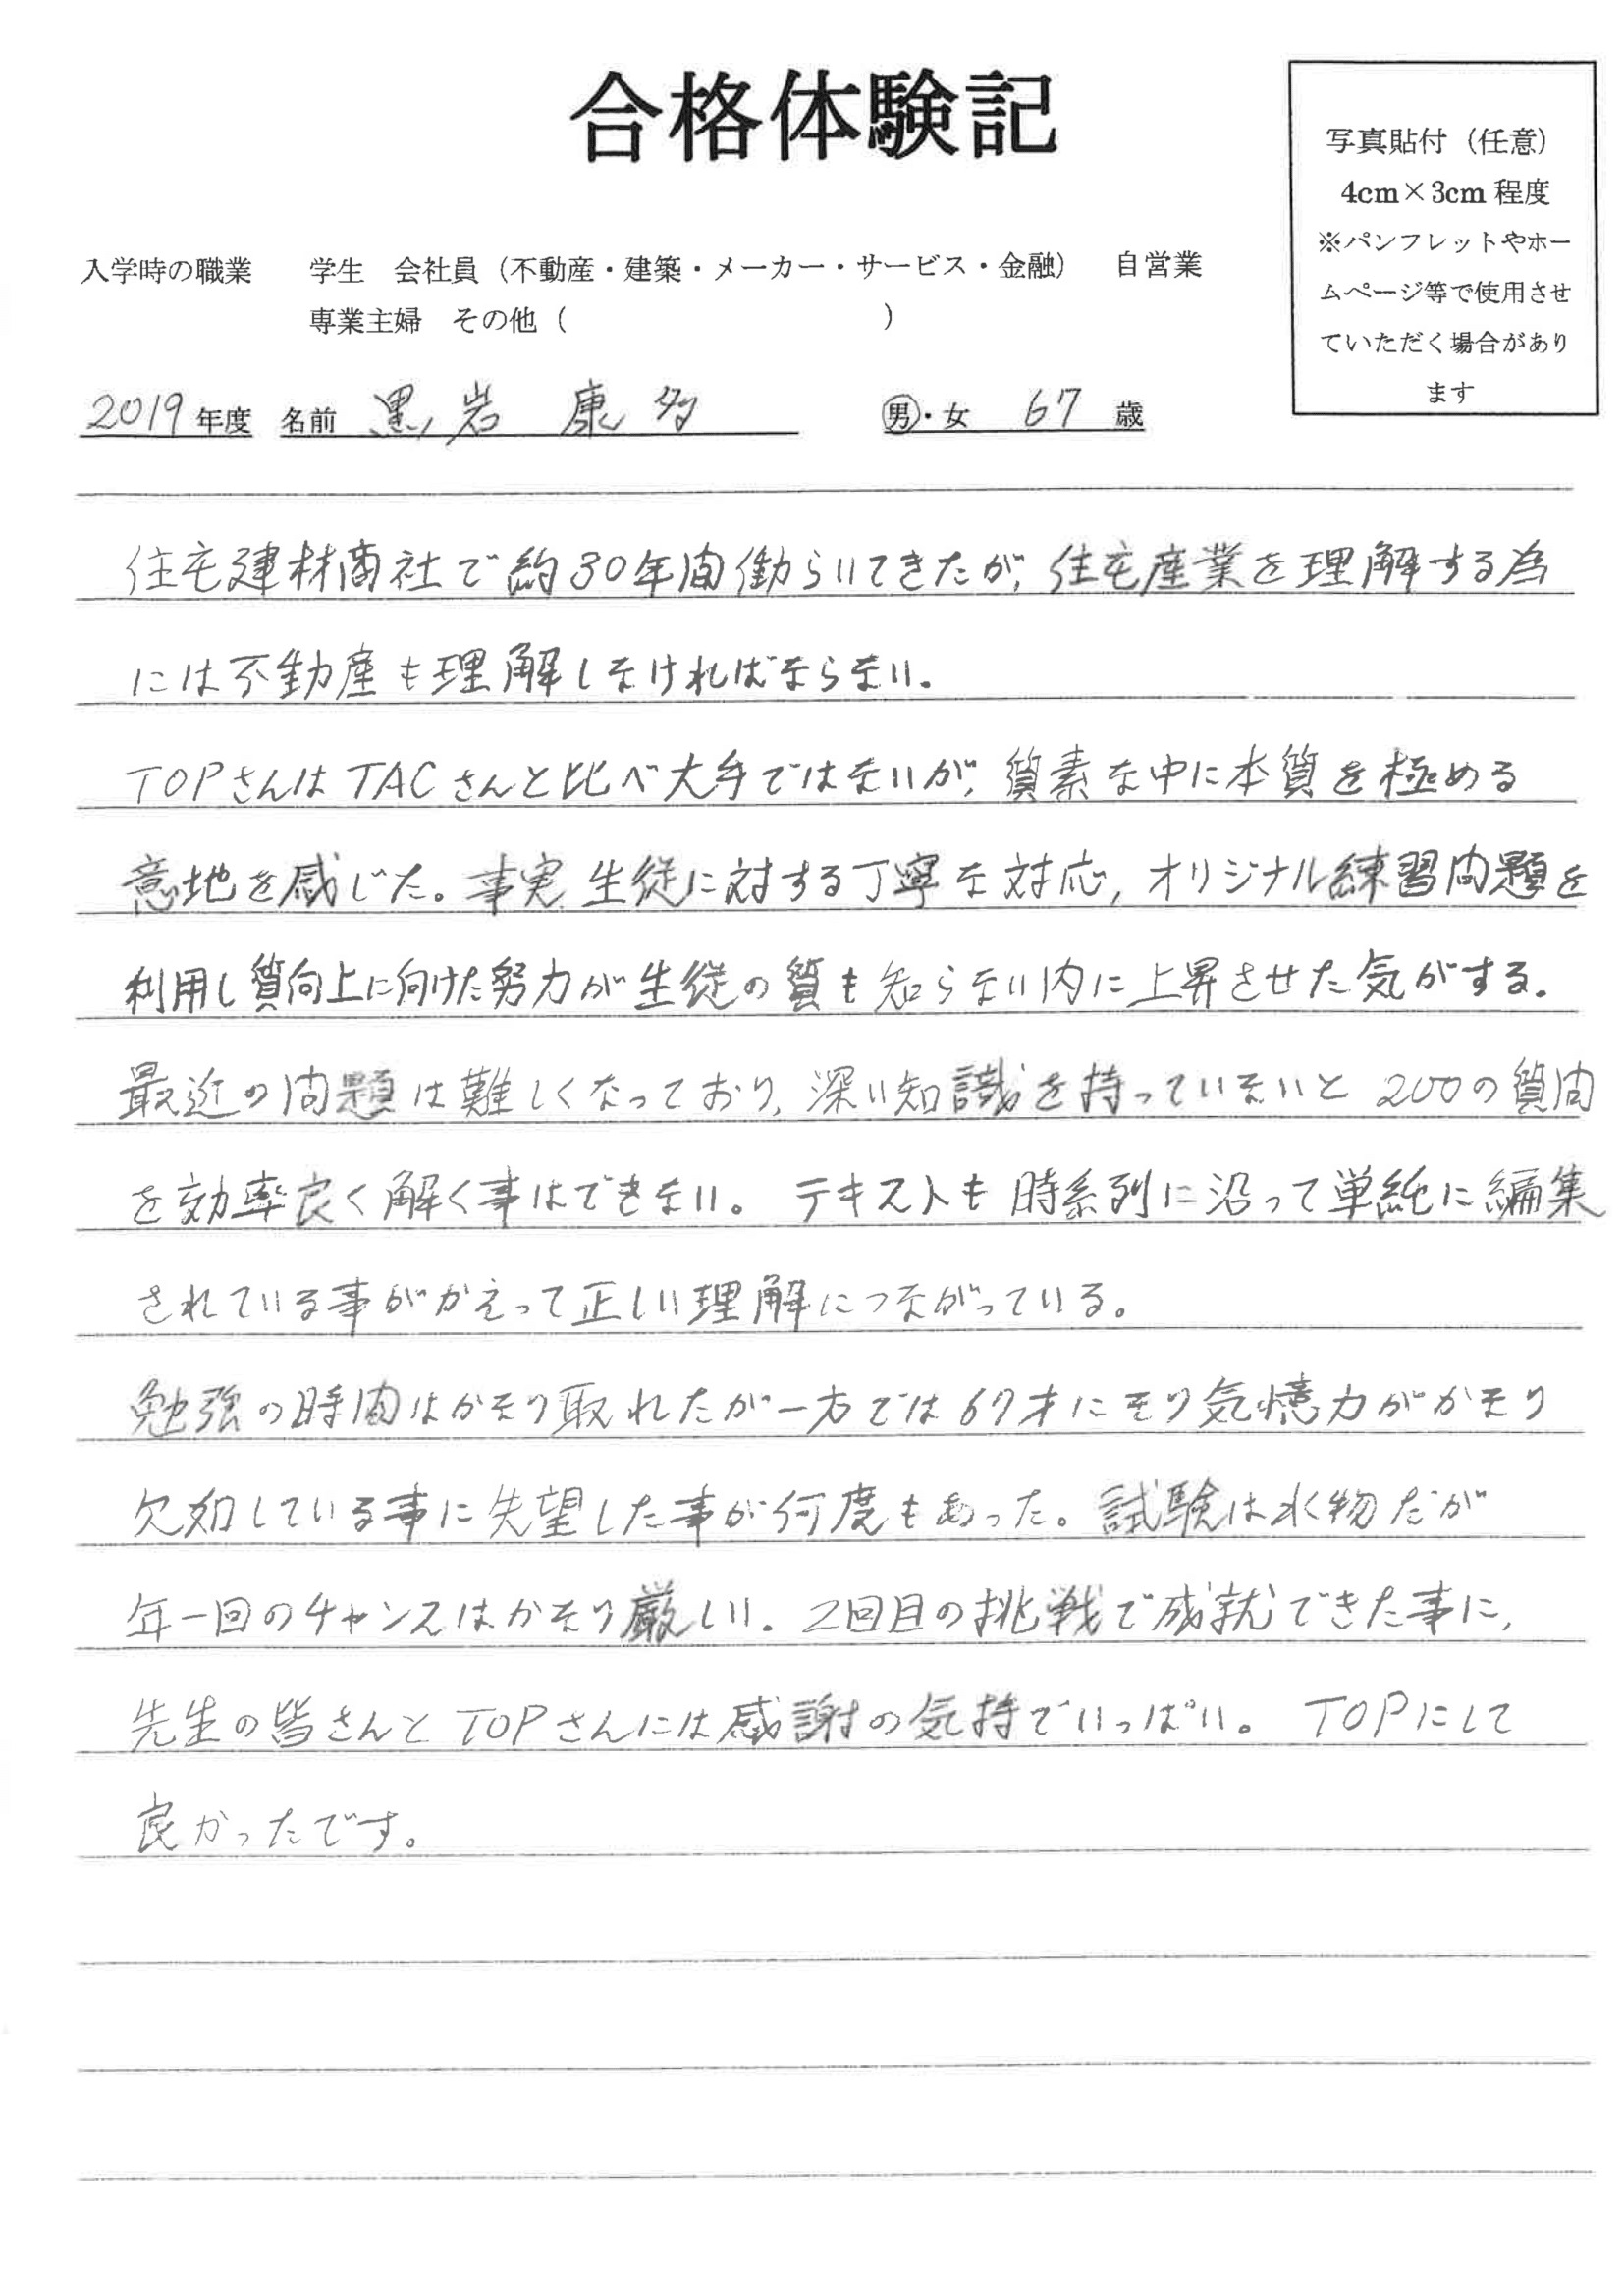 合格体験記
写真貼付（任意）
4cm×3cm 程度
※パンフレットやホー
ムページ等で使用させ
ていただく場合があり
ます
入学時の職業　学生　会社員（不動産・建築・メーカー・サービス・金融）　自営業
専業主婦　その他（　　　　）
2019年度　名前　黒岩　康彦　男・女　67歳
住宅建材商社で約30年間働らいてきたが、住宅産業を理解する為
には不動産も理解しなければならない。
TOPさんはTACさんと比べ大手ではないが、質素な中に本質を極める
意地を感じた。事実、生徒に対する丁寧な対応，オリジナル練習問題を
利用し質向上に向けた努力が生徒の質も知らない内に上昇させた気がする。
最近の問題は難しくなっており、深い知識を持っていないと200の質問
を効率良く解く事はできない。テキストも時系列に沿って単純に編集
されている事がかえって正しい理解につながっている。
勉強の時間はかなり取れたが一方では67才になり気憶力がかなり
欠如している事に失望した事が何度もあった。試験は水物だが
年一回のチャンスはかなり厳しい。2回目の挑戦で成就できた事に，
先生の皆さんとTOPさんには感謝の気持でいっぱい。TOPにして
良かったです。